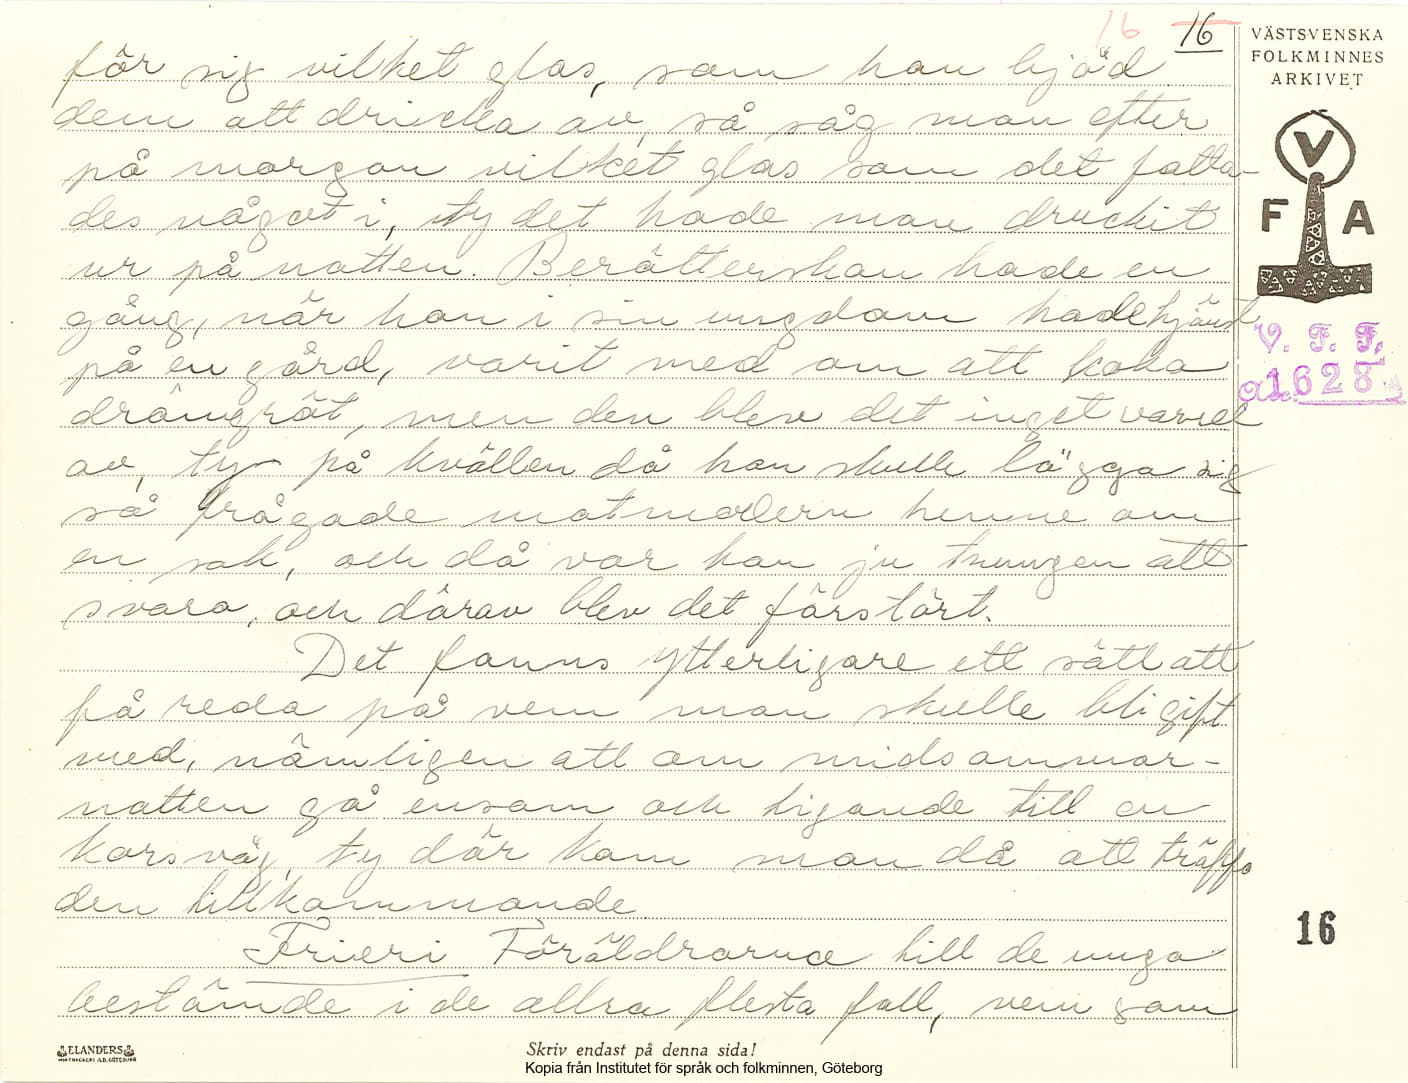 16 16
för sig vilket glas, som han bjöd
dem att dricka av, så såg man efter
på morgon vilket glas som det fatta-
des något i, ty det hade man druckit
ur på natten. Berätterskan hade en
gång, när hon i sin ungdom hade tjänst
på en gård, varit med om att koka
drömgröt, men den blev det inget varvid
av, ty på kvällen då hon skulle lägga sig
så frågade matmodern henne om
en sak, och då var hon ju tvungen att
svara, och därav blev det förstört.
Det fanns ytterligare ett sätt att
få reda på vem man skulle bli gift
med, nämligen att om midsommar-
natten gå ensam och tigande till en
korsväg, ty där kom man då att träffa
den tillkommande.
Frieri Föräldrarna till de unga
bestämde i de allra flesta fall, vem som
VÄSTSVENSKA
FOLKMINNES
ARKIVET
V
F A
V. F. F.
1628
16
ELANDERS
Skriv endast på denna sida!
Kopia från Institutet för språk och folkminnen, Göteborg